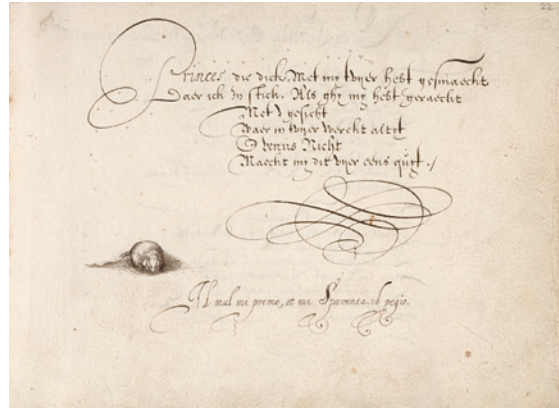 22
Princes die dick. Met my vyer hebt gesmaeckt
Daer ick in stick. Als ghy my hebt geraeckt
Met v gesicht
Waer in vyer werckt altyt
O venus Nicht
Maeckt my dit vyer eens quyt ./
Il mal mi preme, et mi Spaventa il pegio.